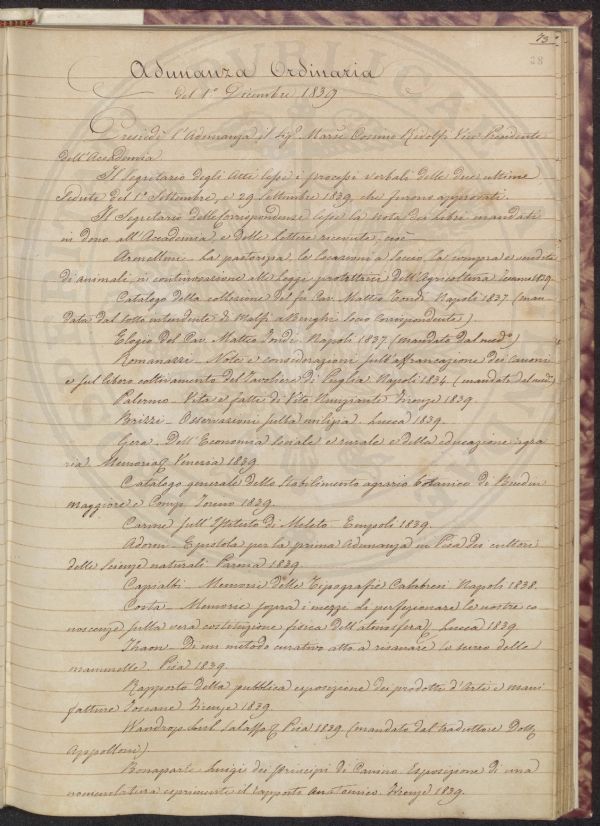 73
38
Adunanza Ordinaria
del 1° Dicembre 1839
Presiede l'Adunanza il Sig. March. Cosimo Ridolfi Vice Presidente
dell'Accademia
Il Segretario degli Atti lesse i processi verbali delle due ultime
Sedute del 1° Settembre, e 29 Settembre 1839, che furono approvati.
Il Segretario delle Corrispondenze lesse la Nota dei Libri mandati
in dono all'Accademia, e delle Lettere ricevute, cioè
Armellini - La pastorizia, le locazioni a Socco, la compra e vendita
di animali, in continuazione alle Leggi protettrici dell'Agricoltura 1839.
Catalogo della collezione del fu Cav. Matteo Tondi Napoli 1837 (man-
data dal sotto intendente di Melfi Socio Corrispondente)
Elogio del Cav. Matteo Tondi. Napoli 1837. (mandato dal med.°)
Romanazzi - Note e considerazioni sull'affrancazione dei canoni
e sul libero coltivamento del Tavoliere di Puglia Napoli 1834 (mandato dal med.°)
Palermo - Vita e fatti di Vito Nunziante Firenze 1839.
Brizzi - Osservazioni sulla milizia. Lucca 1839.
Gera - Dell'Economia sociale e rurale e della educazione agra
ria. Memoria Venezia 1839
Catalogo generale dello stabilimento agrario botanico di Burdin
maggiore e Comp. Torino 1839.
Carme sull'Istituto di Meleto - Empoli 1839.
Adorni - Epistola per la prima Adunanza in Pisa dei cultori
delle Scienze naturali Parma 1839.
Capialbi - Memorie delle Tipografie Calabresi Napoli 1838.
Costa - Memorie sopra i mezzi di perfezionare le nostre co
noscenze sulla vera costituzione fisica dell'atmosfera, Lucca 1839.
Thaon - Di un metodo curativo atto a risanare lo scirro delle
mammelle. Pisa 1839.
Rapporto della pubblica esposizione dei prodotti d'Arti e mani
fatture Toscane Firenze 1839.
Wardrop sul salasso Pisa 1839 (mandato dal traduttore Dott.
Appolloni)
Bonaparte Luigi dei Principi di Canino. Esposizione di una
nomenclatura esprimente il rapporto anatomico. Firenze 1839.